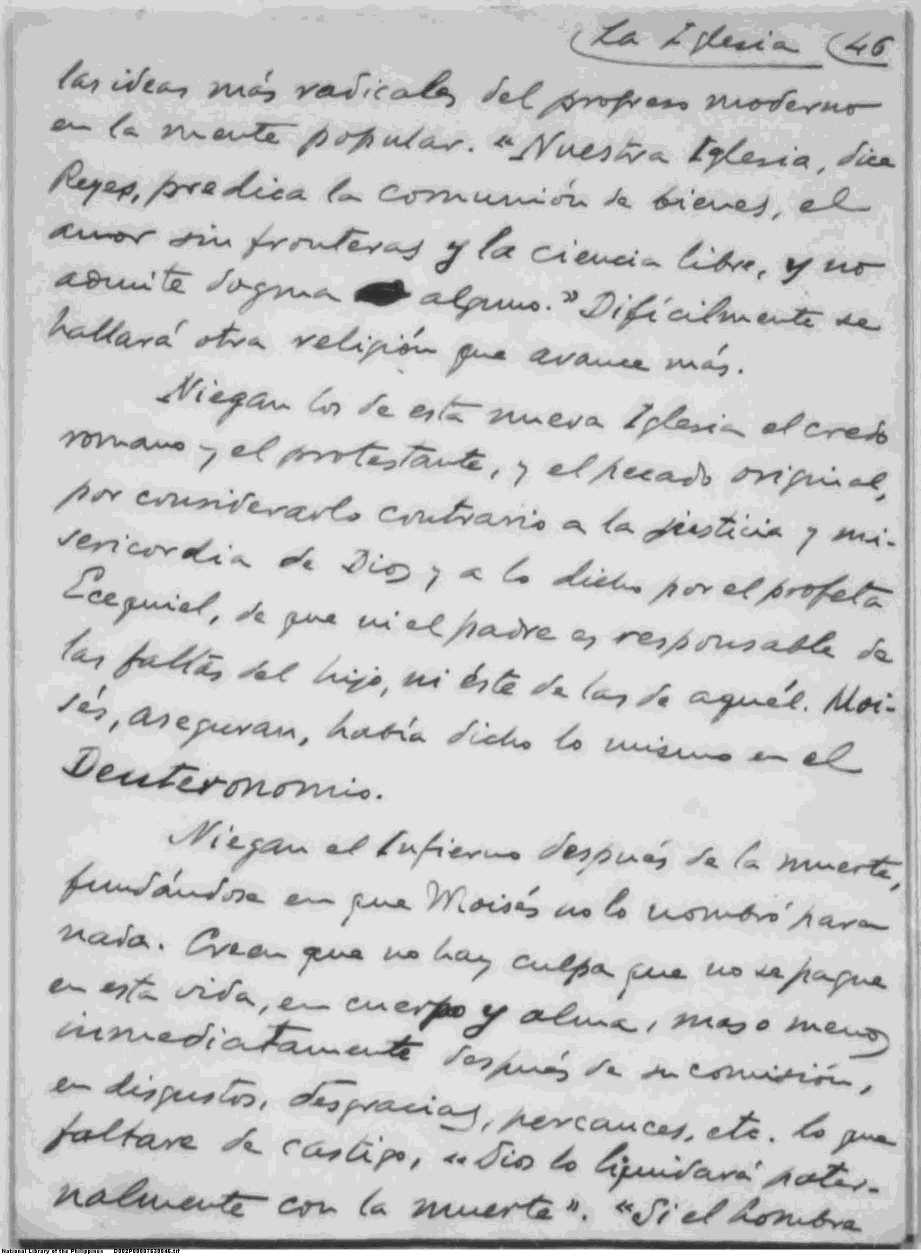 La Iglesia (46
las ideas más radicales del progreso moderno
en la mente popular. "Nuestra Iglesia, dice
Reyes, predica la comunión de bienes, el
amor sin fronteras y la ciencia libre, y no
admite dogma alguno." Difícilmente se
hallará otra religión que avance más.
Niegan los de esta nueva Iglesia el credo
romano y el protestante, y el pecado original,
por considerarlo contrario a la justicia y mi-
sericordia de Dios y a lo dicho por el profeta
Ecequiel, de que ni el padre es responsable de
las faltas del hijo, ni éste de las de aquél. Moi-
sés, aseguran, había dicho lo mismo en el
Deuteronomio.
Niegan el Infierno después de la muerte,
fundándose en que Moisés no lo nombró para
nada. Creen que no hay culpa que no se pague
en esta vida, en cuerpo y alma, mas o menos
inmediatamente después de su comisión,
en disgustos, desgracias, percances, etc. lo que
faltare de castigo, "Dios lo liquidará pater-
nalmente con la muerte". "Si el hombre
National Library of the Philippines D002P00007630046.tif